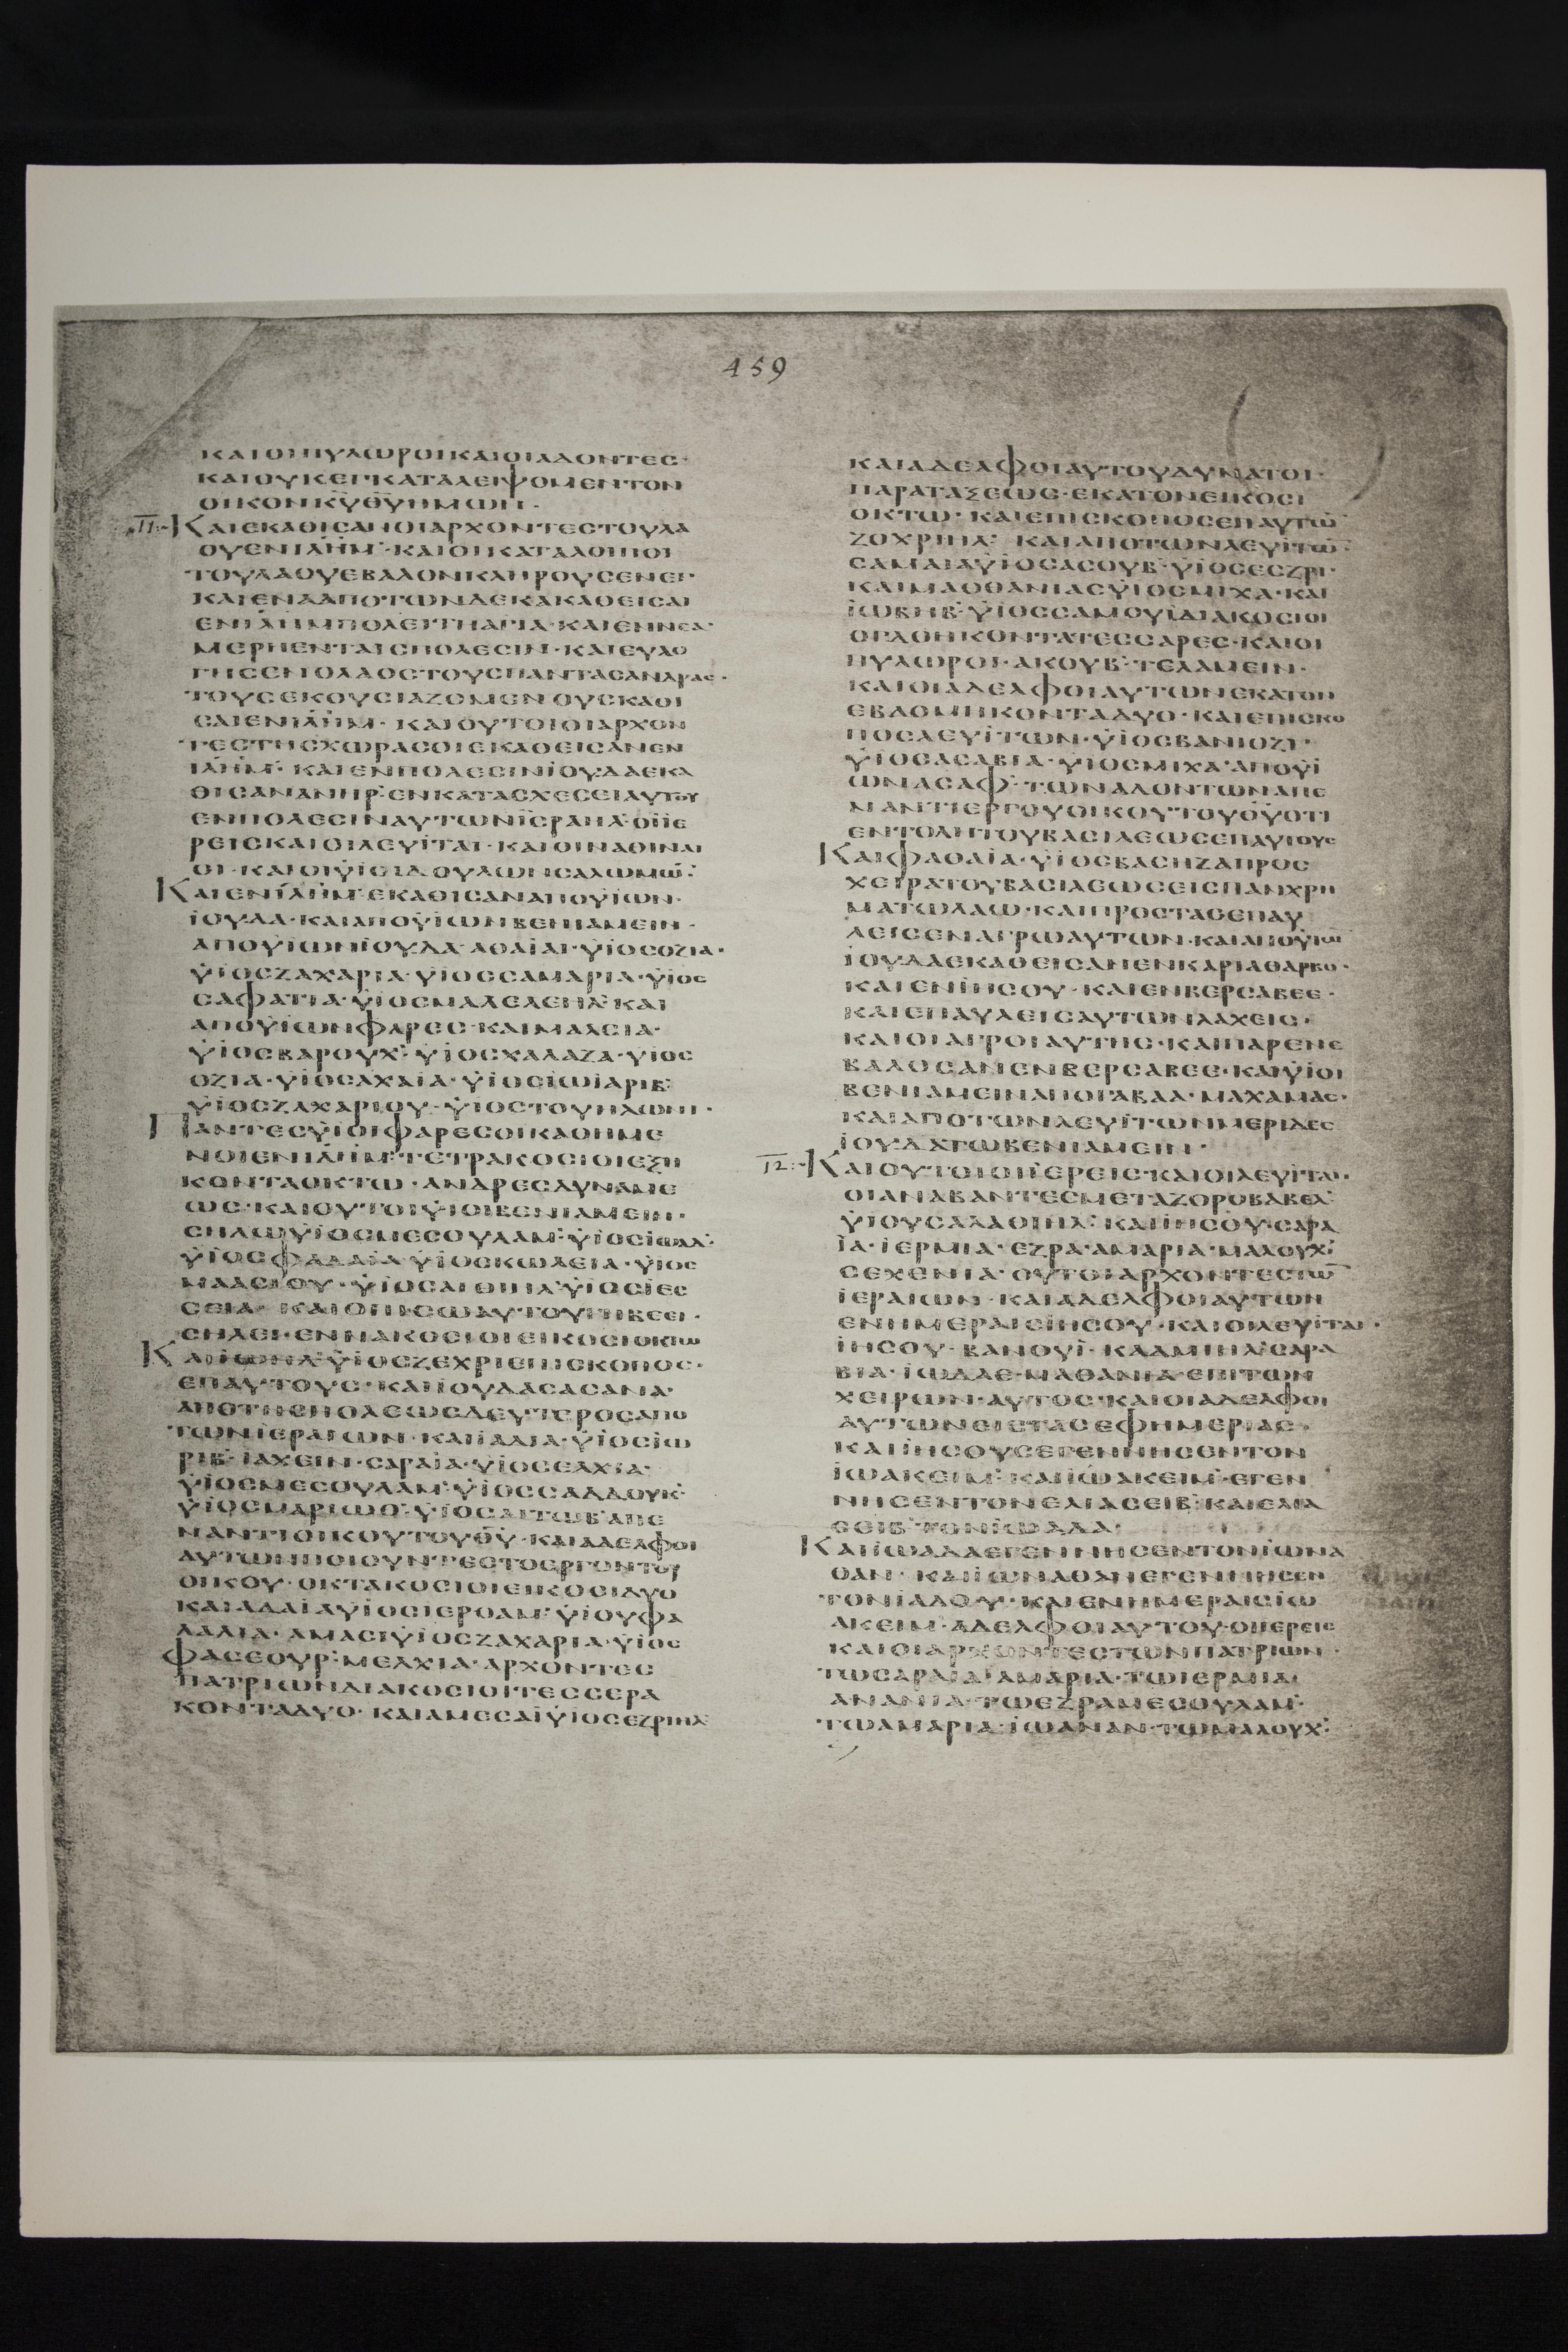 459
ΚΑΙΟΙΠΥΛΩΡΟΙΚΑΙΟΙΑΔΟΝΤΕС·
ΚΑΙΟΥΚΕΓΚΑΤΑΛΕΙΨΟΜΕΝΤΟΝ
ΟΙΚΟΝΚ̅Υ̅Θ̅Υ̅ΗΜΩΝ·
11 ΚΑΙΕΚΑΘΙСΑΝΟΙΑΡΧΟΝΤΕСΤΟΥΛΑ
ΟΥΕΝΙΛΗΜ·ΚΑΙΟΙΚΑΤΑΛΟΙΠΟΙ
ΤΟΥΛΑΟΥΕΒΑΛΟΝΚΛΗΡΟΥСΕΝΕΓ·
ΚΑΙΕΝΑΑΠΟΤΩΝΔΕΚΑΚΑΘΕΙСΑΙ
ΕΝΙΛΗΜΠΟΛΕΙΤΗΑΓΙΑ·ΚΑΙΕΝΝΕΑ·
ΜΕΡΗΕΝΤΑΙСΠΟΛΕСΙΝ·ΚΑΙΕΥΛΟ
ΓΗСΕΝΟΛΑΟСΤΟΥСΠΑΝΤΑСΑΝΔΡΑС·
ΤΟΥСΕΚΟΥСΙΑΖΟΜΕΝΟΥСΚΑΘΙ
СΑΙΕΝΙΛΗΜ·ΚΑΙΟΥΤΟΙΟΙΑΡΧΟΝ
ΤΕСΤΗСΧΩΡΑСΟΙΕΚΑΘΕΙСΑΝΕΝ
ΙΛΗΜ·ΚΑΙΕΝΠΟΛΕСΙΝΪΟΥΔΑΕΚΑ
ΘΙСΑΝΑΝΗΡ·ΕΝΚΑΤΑСΧΕСΕΙΑΥΤΟΥ
ΕΝΠΟΛΕСΙΝΑΥΤΩΝΪСΡΑΗΛ·ΟΙΪΕ
ΡΕΙСΚΑΙΟΙΛΕΥΪΤΑΙ·ΚΑΙΟΙΝΑΘΙΝΑΙ
ΟΙ·ΚΑΙΟΙΫΙΟΙΔΟΥΛΩΝСΑΛΩΜΩ̅·
ΚΑΙΕΝΙΛΗΜ·ΕΚΑΘΙСΑΝΑΠΟΥΪΩΝ·
ΪΟΥΔΑ·ΚΑΙΑΠΟΥΪΩΝΒΕΝΙΑΜΕΙΝ·
ΑΠΟΥΪΩΝΪΟΥΔΑ·ΑΘΑΪΑΙ·ΫΙΟСΟΖΙΑ·
ΫΙΟСΖΑΧΑΡΙΑ·ΫΙΟССΑΜΑΡΙΑ·ΫΙΟС
СΑΦΑΤΙΑ·ΫΙΟСΜΑΛΕΛΕΗΛ·ΚΑΙ
ΑΠΟΥΪΩΝΦΑΡΕС·ΚΑΙΜΑΛСΙΑ·
ΫΙΟСΒΑΡΟΥΧ·ΫΙΟСΧΑΛΑΖΑ·ΫΙΟС
ΟΖΙΑ·ΫΙΟСΑΧΑΙΑ·ΫΙΟСΪΩΪΑΡΙΒ·
ΫΙΟСΖΑΧΑΡΙΟΥ·ΫΙΟСΤΟΥΗΛΩΝΙ·
ΠΑΝΤΕСΫΙΟΙΦΑΡΕСΟΙΚΑΘΗΜΕ
ΝΟΙΕΝΙΛΗΜ·ΤΕΤΡΑΚΟСΙΟΙΕΞΗ
ΚΟΝΤΑΟΚΤΩ·ΑΝΔΡΕСΔΥΝΑΜΕ
ΩС·ΚΑΙΟΥΤΟΙΫΙΟΙΒΕΝΙΑΜΕΙΝ·
СΗΛΩΫΙΟСΜΕСΟΥΛΑΜ·ΫΙΟСΪΩΑΔ·
ΫΙΟСΦΑΛΑΪΑ·ΫΙΟСΚΩΛΕΙΑ·ΫΙΟС
ΜΑΑСΙΟΥ·ΫΙΟСΑΙΘΙΗΛ·ΫΙΟСΪΕС
СΕΙΑ·ΚΑΙΟΠΙСΩΑΥΤΟΥΓΗΒΕΕΙ·
СΗΛΕΙ·ΕΝΝΑΚΟСΙΟΙΕΙΚΟСΙΟΚΤΩ
ΚΑΙΪΩΗΛ·ΫΙΟСΖΕΧΡΙΕΠΙСΚΟΠΟС·
ΕΠΑΥΤΟΥС·ΚΑΙΪΟΥΔΑСΑСΑΝΑ·
ΑΠΟΤΗСΠΟΛΕΩСΔΕΥΤΕΡΟСΑΠΟ
ΤΩΝΪΕΡΑΙΩΝ·ΚΑΙΪΔΑΙΑ·ΫΙΟСΪΩ
ΡΙΒ·ΪΑΧΕΙΝ·СΑΡΑΙΑ·ΫΙΟСΕΛΧΙΑ·
ΫΙΟСΜΕСΟΥΛΑΜ·ΫΙΟССΑΔΔΟΥΚ·
ΫΙΟСΜΑΡΙΩΘ·ΫΙΟСΑΙΤΩΒ·ΑΠΕ
ΝΑΝΤΙΟΙΚΟΥΤΟΥΘ̅Υ̅·ΚΑΙΑΔΕΛΦΟΙ
ΑΥΤΩΝΠΟΙΟΥΝΤΕСΤΟΕΡΓΟΝΤΟΥ
ΟΙΚΟΥ·ΟΚΤΑΚΟСΙΟΙΕΙΚΟСΙΔΥΟ
ΚΑΙΑΔΑΙΑΫΙΟСΙΕΡΟΑΜ·ΫΙΟΥΦΑ
ΛΑΛΙΑ·ΑΜΑСΙΫΙΟСΖΑΧΑΡΙΑ·ΫΙΟС
ΦΑСΕΟΥΡ·ΜΕΛΧΙΑ·ΑΡΧΟΝΤΕС
ΠΑΤΡΙΩΝΔΙΑΚΟСΙΟΙΤΕССΕΡΑ
ΚΟΝΤΑΔΥΟ·ΚΑΙΑΜΕСΑΪΫΙΟСΕΖΡΙΗΛ·
ΚΑΙΑΔΕΛΦΟΙΑΥΤΟΥΔΥΝΑΤΟΙ·
ΠΑΡΑΤΑΞΕΩС·ΕΚΑΤΟΝΕΙΚΟСΙ
ΟΚΤΩ·ΚΑΙΕΠΙСΚΟΠΟСΕΠΑΥΤΩ̅
ΖΟΧΡΙΗΛ·ΚΑΙΑΠΟΤΩΝΛΕΥΪΤΩ̅·
СΑΜΑΙΑΫΙΟСΑСΟΥΒ·ΫΙΟСΕСΖΡΙ·
ΚΑΙΜΑΘΘΑΝΙΑСΫΙΟСΜΙΧΑ·ΚΑΙ
ΪΩΒΗΒ·ΫΙΟССΑΜΟΥΪΔΙΑΚΟСΙΟΙ
ΟΓΔΟΗΚΟΝΤΑΤΕССΑΡΕС·ΚΑΙΟΙ
ΠΥΛΩΡΟΙ·ΑΚΟΥΒ·ΤΕΛΑΜΕΙΝ·
ΚΑΙΟΙΑΔΕΛΦΟΙΑΥΤΩΝΕΚΑΤΟΝ
ΕΒΔΟΜΗΚΟΝΤΑΔΥΟ·ΚΑΙΕΠΙСΚΟ
ΠΟСΛΕΥΪΤΩΝ·ΫΙΟСΒΑΝΙΟΖΙ·
ΫΙΟСΑСΑΒΙΑ·ΫΙΟСΜΙΧΑ·ΑΠΟΥΪ
ΩΝΑСΑΦ·ΤΩΝΑΔΟΝΤΩΝΑΠΕ
ΝΑΝΤΙΕΡΓΟΥΟΙΚΟΥΤΟΥΘ̅Υ̅ΟΤΙ
ΕΝΤΟΛΗΤΟΥΒΑСΙΛΕΩСΕΠΑΥΤΟΥС
ΚΑΙΦΑΘΑΪΑ·ΫΙΟСΒΑСΗΖΑΠΡΟС
ΧΕΙΡΑΤΟΥΒΑСΙΛΕΩСΕΙСΠΑΝΧΡΗ
ΜΑΤΩΛΑΩ·ΚΑΙΠΡΟСΤΑСΕΠΑΥ
ΛΕΙСΕΝΑΓΡΩΑΥΤΩΝ·ΚΑΙΑΠΟΥΪΩ̅
ΪΟΥΔΑΕΚΑΘΕΙСΑΝΕΝΚΑΡΙΑΘΑΡΒΟ·
ΚΑΙΕΝΪΗСΟΥ·ΚΑΙΕΝΒΕΡСΑΒΕΕ·
ΚΑΙΕΠΑΥΛΕΙСΑΥΤΩΝΛΑΧΕΙС·
ΚΑΙΟΙΑΓΡΟΙΑΥΤΗС·ΚΑΙΠΑΡΕΝΕ
ΒΑΛΟСΑΝΕΝΒΕΡСΑΒΕΕ·ΚΑΙΫΙΟΙ
ΒΕΝΙΑΜΕΙΝΑΠΟΓΑΒΑΑ·ΜΑΧΑΜΑС·
ΚΑΙΑΠΟΤΩΝΛΕΥΪΤΩΝΜΕΡΙΔΕС
ΪΟΥΔΑΤΩΒΕΝΙΑΜΕΙΝ·
12 ΚΑΙΟΥΤΟΙΟΙΪΕΡΕΙС·ΚΑΙΟΙΛΕΥΪΤΑΙ·
ΟΙΑΝΑΒΑΝΤΕСΜΕΤΑΖΟΡΟΒΑΒΕΛ
ΫΙΟΥСΑΛΑΘΙΗΛ·ΚΑΙΪΗСΟΥ·СΑΡΑ
ΪΑ·ΪΕΡΜΙΑ·ΕΖΡΑ·ΑΜΑΡΙΑ·ΜΑΛΟΥΧ·
СΕΧΕΝΙΑ·ΟΥΤΟΙΑΡΧΟΝΤΕСΤΩ̅
ΪΕΡΑΙΩΝ·ΚΑΙΑΔΕΛΦΟΙΑΥΤΩΝ
ΕΝΗΜΕΡΑΙСΪΗСΟΥ·ΚΑΙΟΙΛΕΥΪΤΑΙ·
ΪΗСΟΥ·ΒΑΝΟΥΪ·ΚΑΔΜΙΗΛ·СΑΡΑ
ΒΙΑ·ΪΩΔΑΕ·ΜΑΘΑΝΙΑ·ΕΠΙΤΩΝ
ΧΕΙΡΩΝ·ΑΥΤΟС·ΚΑΙΟΙΑΔΕΛΦΟΙ
ΑΥΤΩΝΕΙСΤΑСΕΦΗΜΕΡΙΑС·
ΚΑΙΪΗСΟΥСΕΓΕΝΝΗСΕΝΤΟΝ
ΪΩΑΚΕΙΜ·ΚΑΙΪΩΑΚΕΙΜ·ΕΓΕΝ
ΝΗСΕΝΤΟΝΕΛΙΑСΕΙΒ·ΚΑΙΕΛΙΑ
СΕΙΒ·ΤΟΝΪΩΔΑΔΑ·
ΚΑΙΪΩΔΑΔΑΕΓΕΝΝΗСΕΝΤΟΝΪΩΝΑ
ΘΑΝ·ΚΑΙΪΩΝΑΘΑΝΕΓΕΝΝΗСΕΝ
ΤΟΝΪΑΔΟΥ·ΚΑΙΕΝΗΜΕΡΑΙСΪΩ
ΑΚΕΙΜ·ΑΔΕΛΦΟΙΑΥΤΟΥ·ΟΙΪΕΡΕΙС
ΚΑΙΟΙΑΡΧΟΝΤΕСΤΩΝΠΑΤΡΙΩΝ·
ΤΩСΑΡΑΙΑ·ΑΜΑΡΙΑ·ΤΩΙΕΡΜΙΑ·
ΑΝΑΝΙΑ·ΤΩΕΖΡΑΜΕСΟΥΛΑΜ·
ΤΩΑΜΑΡΙΑ·ΪΩΑΝΑΝ·ΤΩΜΑΛΟΥΧ·